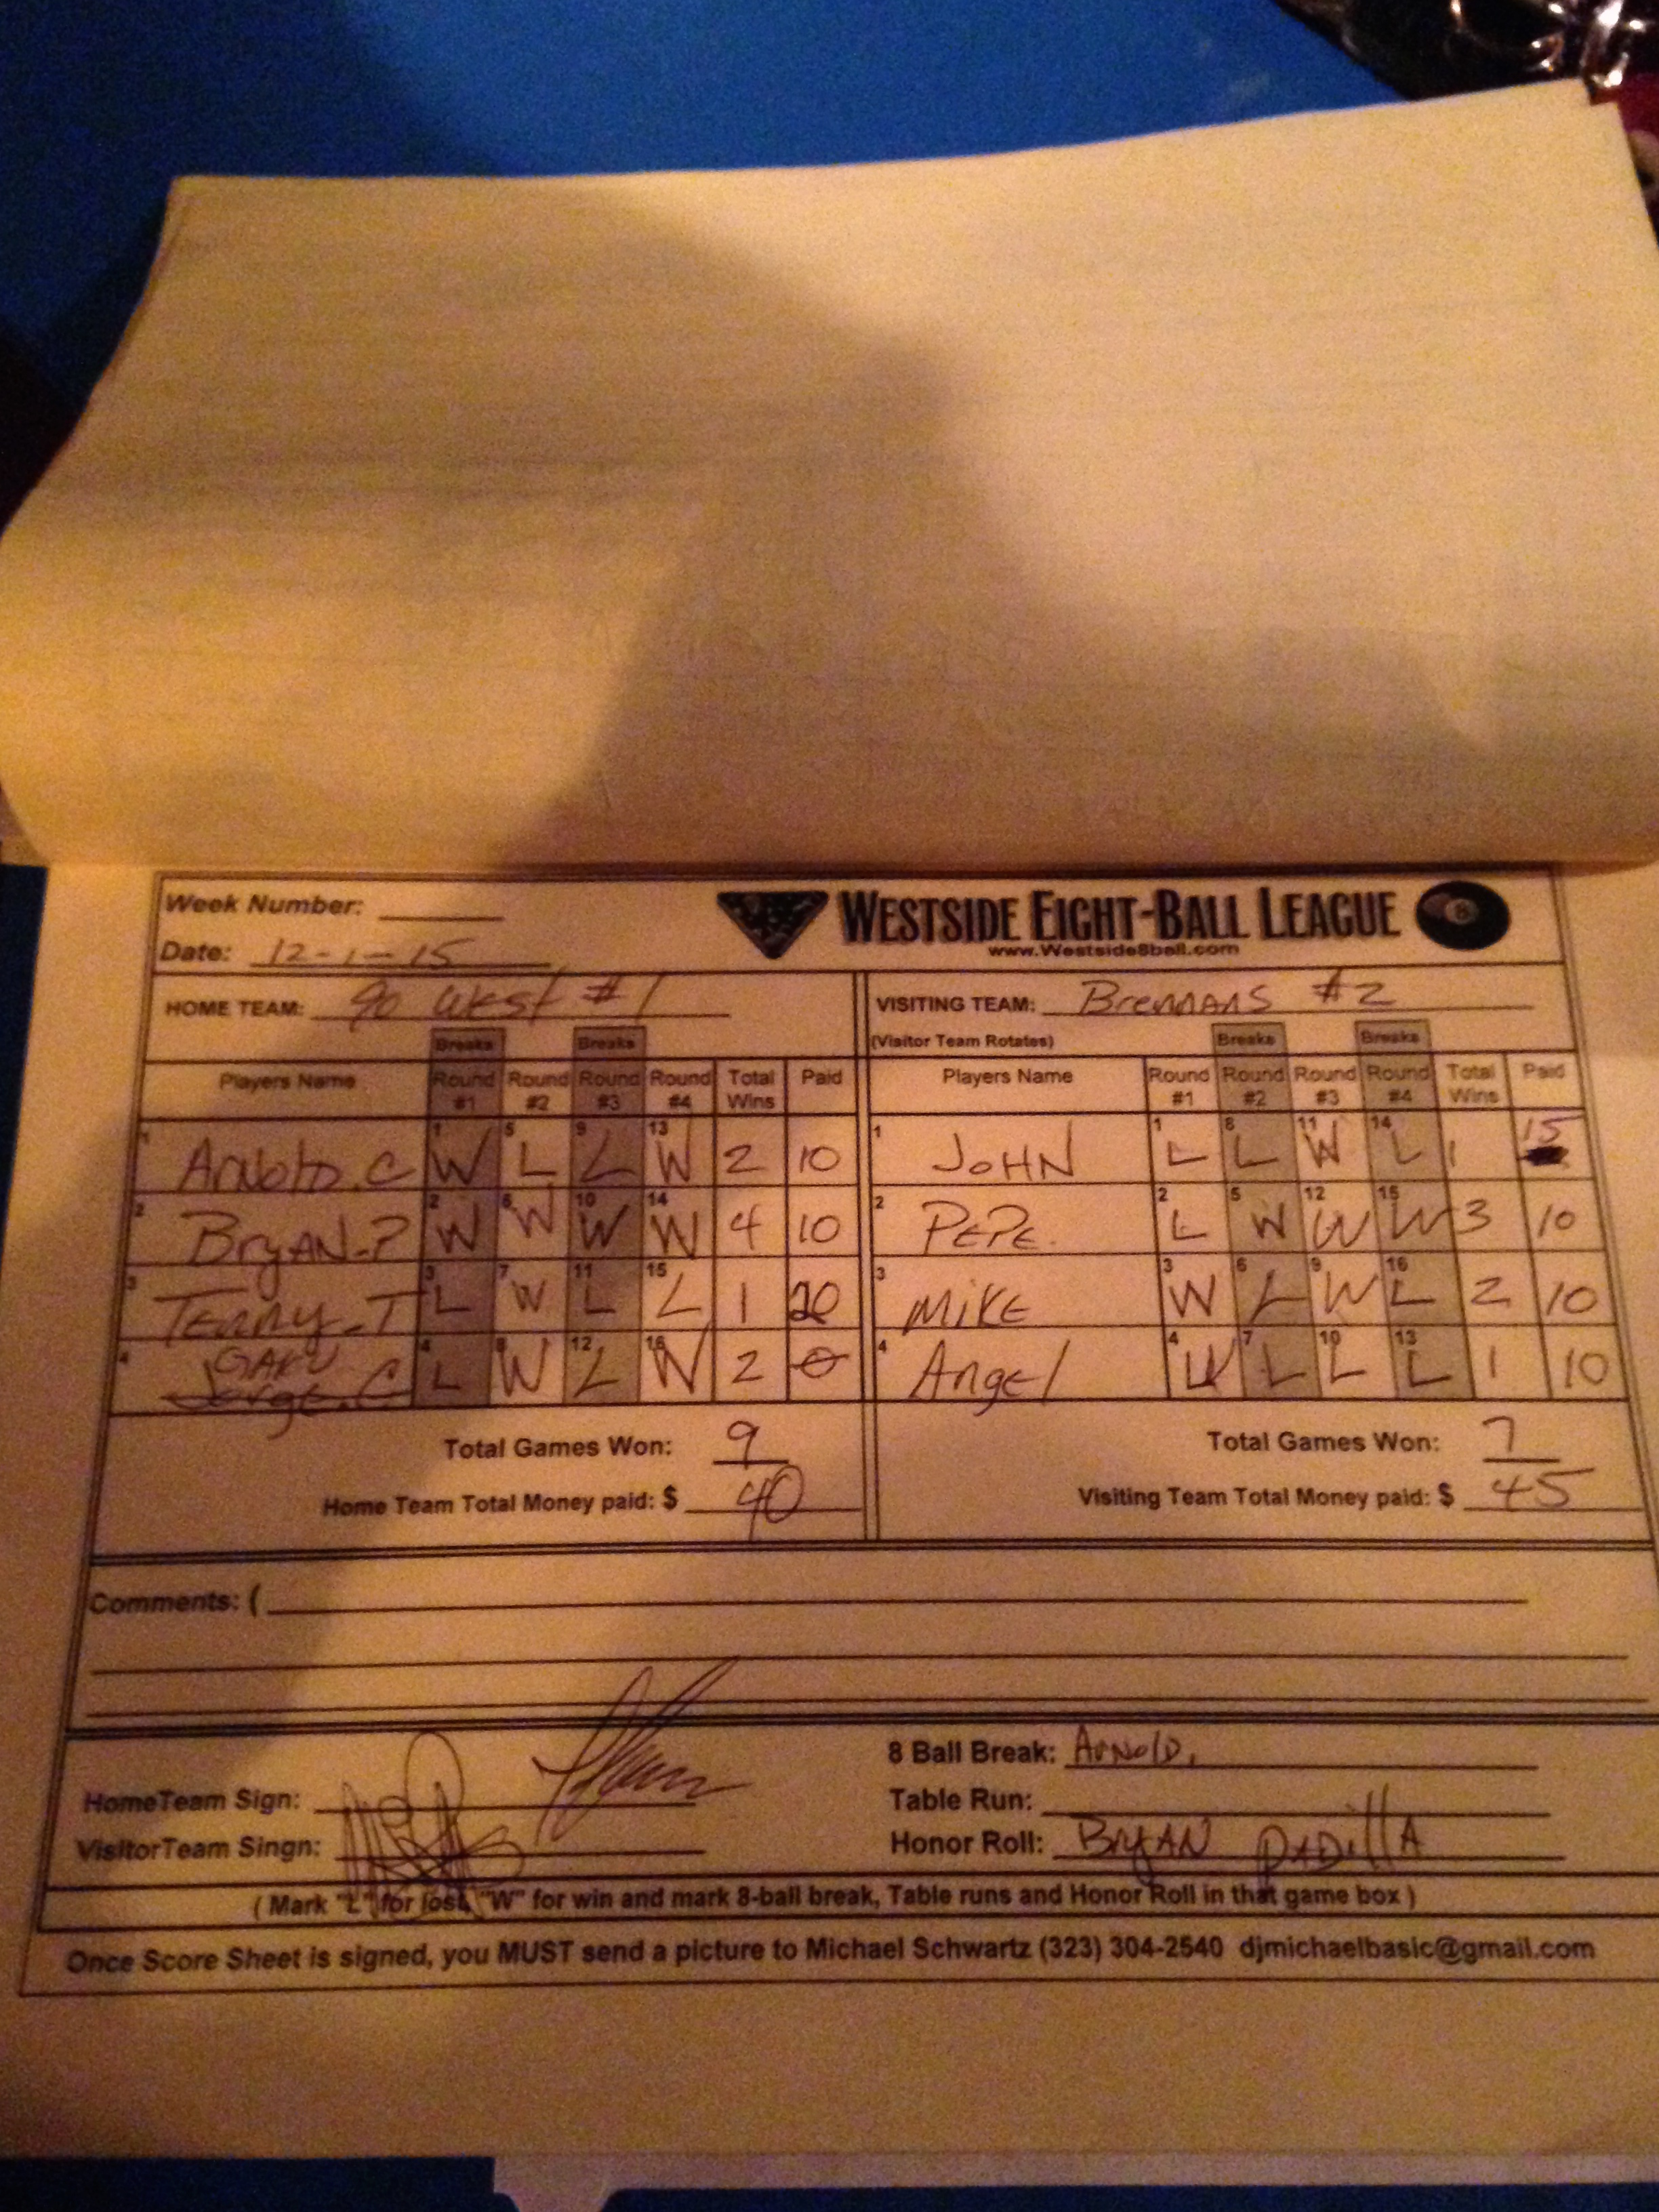 Week Number:
WESTSIDE EIGHT-BALL LEAGUE 8
Date: 12-1-15
www.Westside8ball.com
HOME TEAM: 90 West #1
VISITING TEAM: Brennans #2
Breaks Breaks
(Visitor Team Rotates) Breaks Breaks
Players Name Round #1 Round #2 Round #3 Round #4 Total Wins Paid
Players Name Round #1 Round #2 Round #3 Round #4 Total Wins Paid
1 Arnold.C 1 W 5 L 9 L 13 W 2 10
1 JOHN 1 L 8 L 11 W 14 L 1 15
2 BryAN.P 2 W 6 W 10 W 14 W 4 10
2 PEPE. 2 L 5 W 12 W 15 W 3 10
3 Tenny-T 3 L 7 W 11 L 15 L 1 20
3 MIKE 3 W 6 L 9 W 16 L 2 10
4 GARY Jorge.C 4 L 8 W 12 L 16 W 2 0
4 Angel 4 W 7 L 10 L 13 L 1 10
Total Games Won: 9
Total Games Won: 7
Home Team Total Money paid: $ 40
Visiting Team Total Money paid: $ 45
Comments: (
8 Ball Break: Arnold,
HomeTeam Sign:
Table Run:
VisitorTeam Singn:
Honor Roll: BryAN PADillA
( Mark "L" for lost, "W" for win and mark 8-ball break, Table runs and Honor Roll in that game box )
Once Score Sheet is signed, you MUST send a picture to Michael Schwartz (323) 304-2540 djmichaelbasic@gmail.com